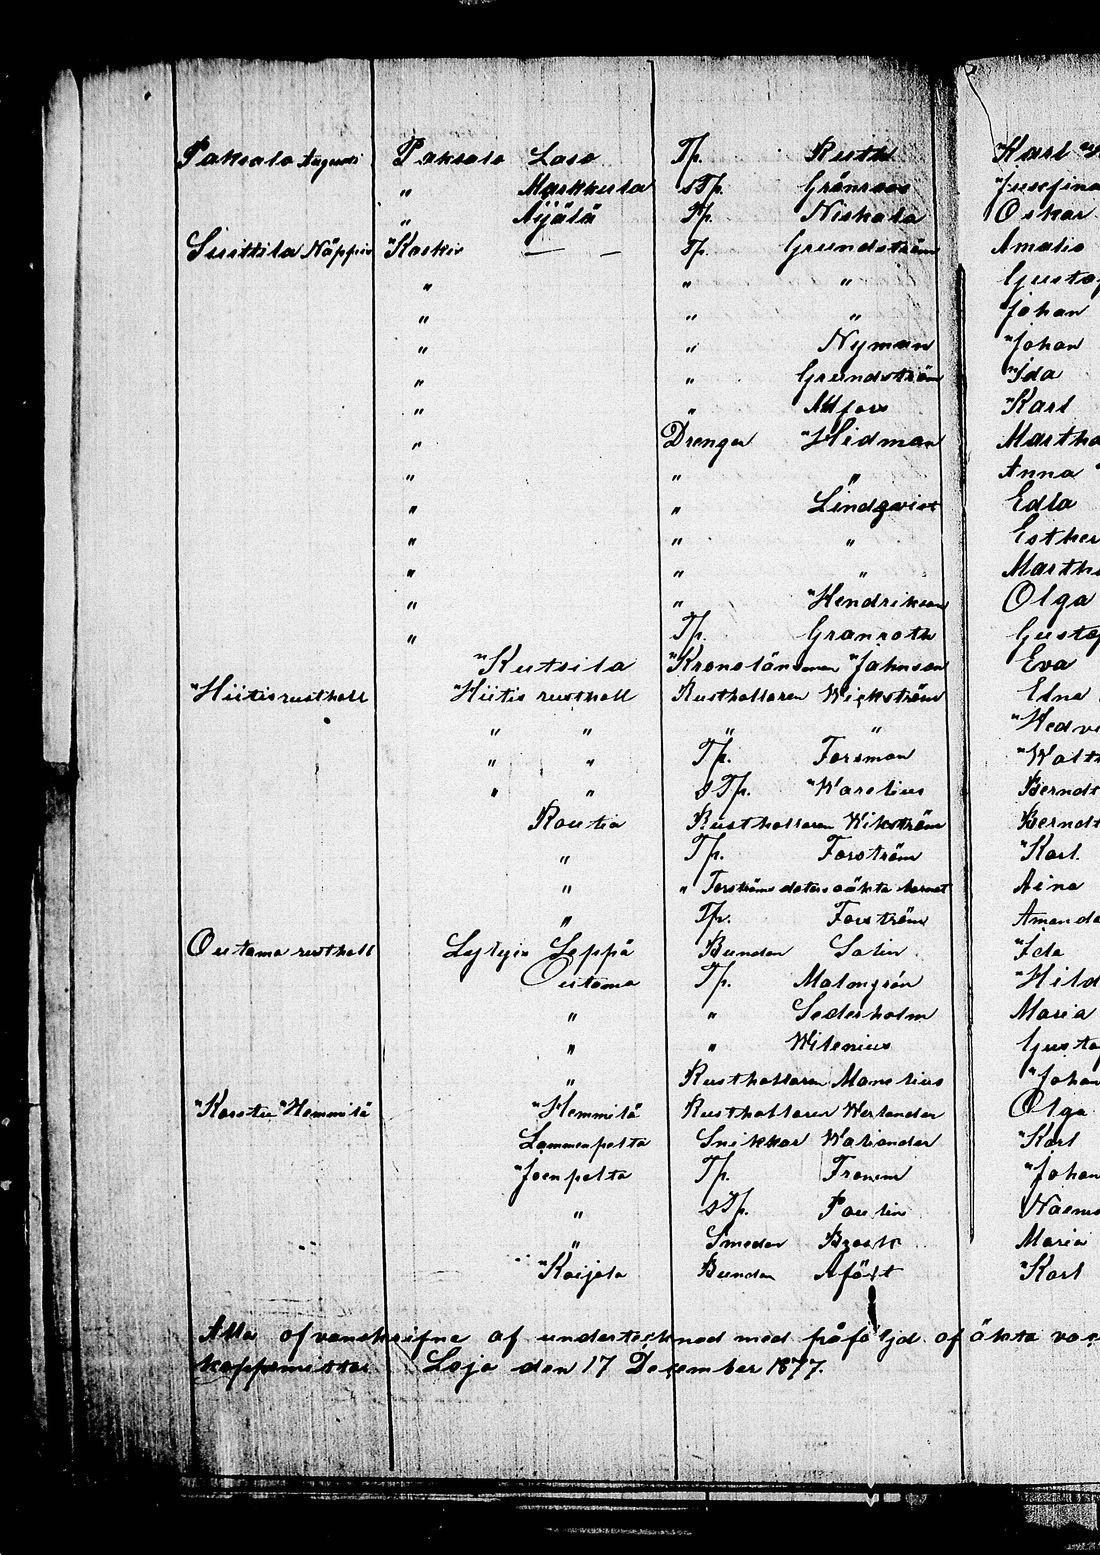 Paksalo Augusti Paksalo Laso Tp. Ruth Karl
" Markkula sTp. Grönroos Josefina
" Äijälä Tp. Niskala Oskar
Suittila Näppin Koski — — Tp. Grundström Amalia
" " " Gustaf
" " " Johan
" " Nyman Johan
" " Grundström Ida
" " Alfors Karl
" Drengen Hidman Martha
" " " Anna
" " Lindqvist Edla
" " " Esther
" " " Martha
" " Hendrikson Olga
" Tp. Granroth Gustaf
Kutsila Kronolänsman Johnson Eva
Hiitis rusthåll Hiitis rusthåll Rusthållaren Wickström Edna
" " " " Hedvi
" " Tp. Forsman Walt
" " sTp. Warelius Berndt
Routio Rusthållaren Wikström Berndt
" Tp. Forström Karl
" " Forströms dotters oäkta barnet Aina
" Tp. Forström Amanda
Outamo rusthåll Lylyis Seppä Bunden Salin Ida
Outamo Tp. Malmgrén Hild
" " Sederholm Maria
" " Wilenius Gusta
" Rusthållaren Manelius Johan
Karstu Hemmilä Hemmilä Rusthållaren Werlander Olga
Lammenpelto Snikkar Waliander Karl
Joenpelto Tp. Tronen Johan
" sTp. Paulin
" Smeden Maria
Koijola Bunden Karl
Alla ofvanskrifne af undertecknad med påföljd af äkta vac
koppämnen Lojo den 17 December 1877.